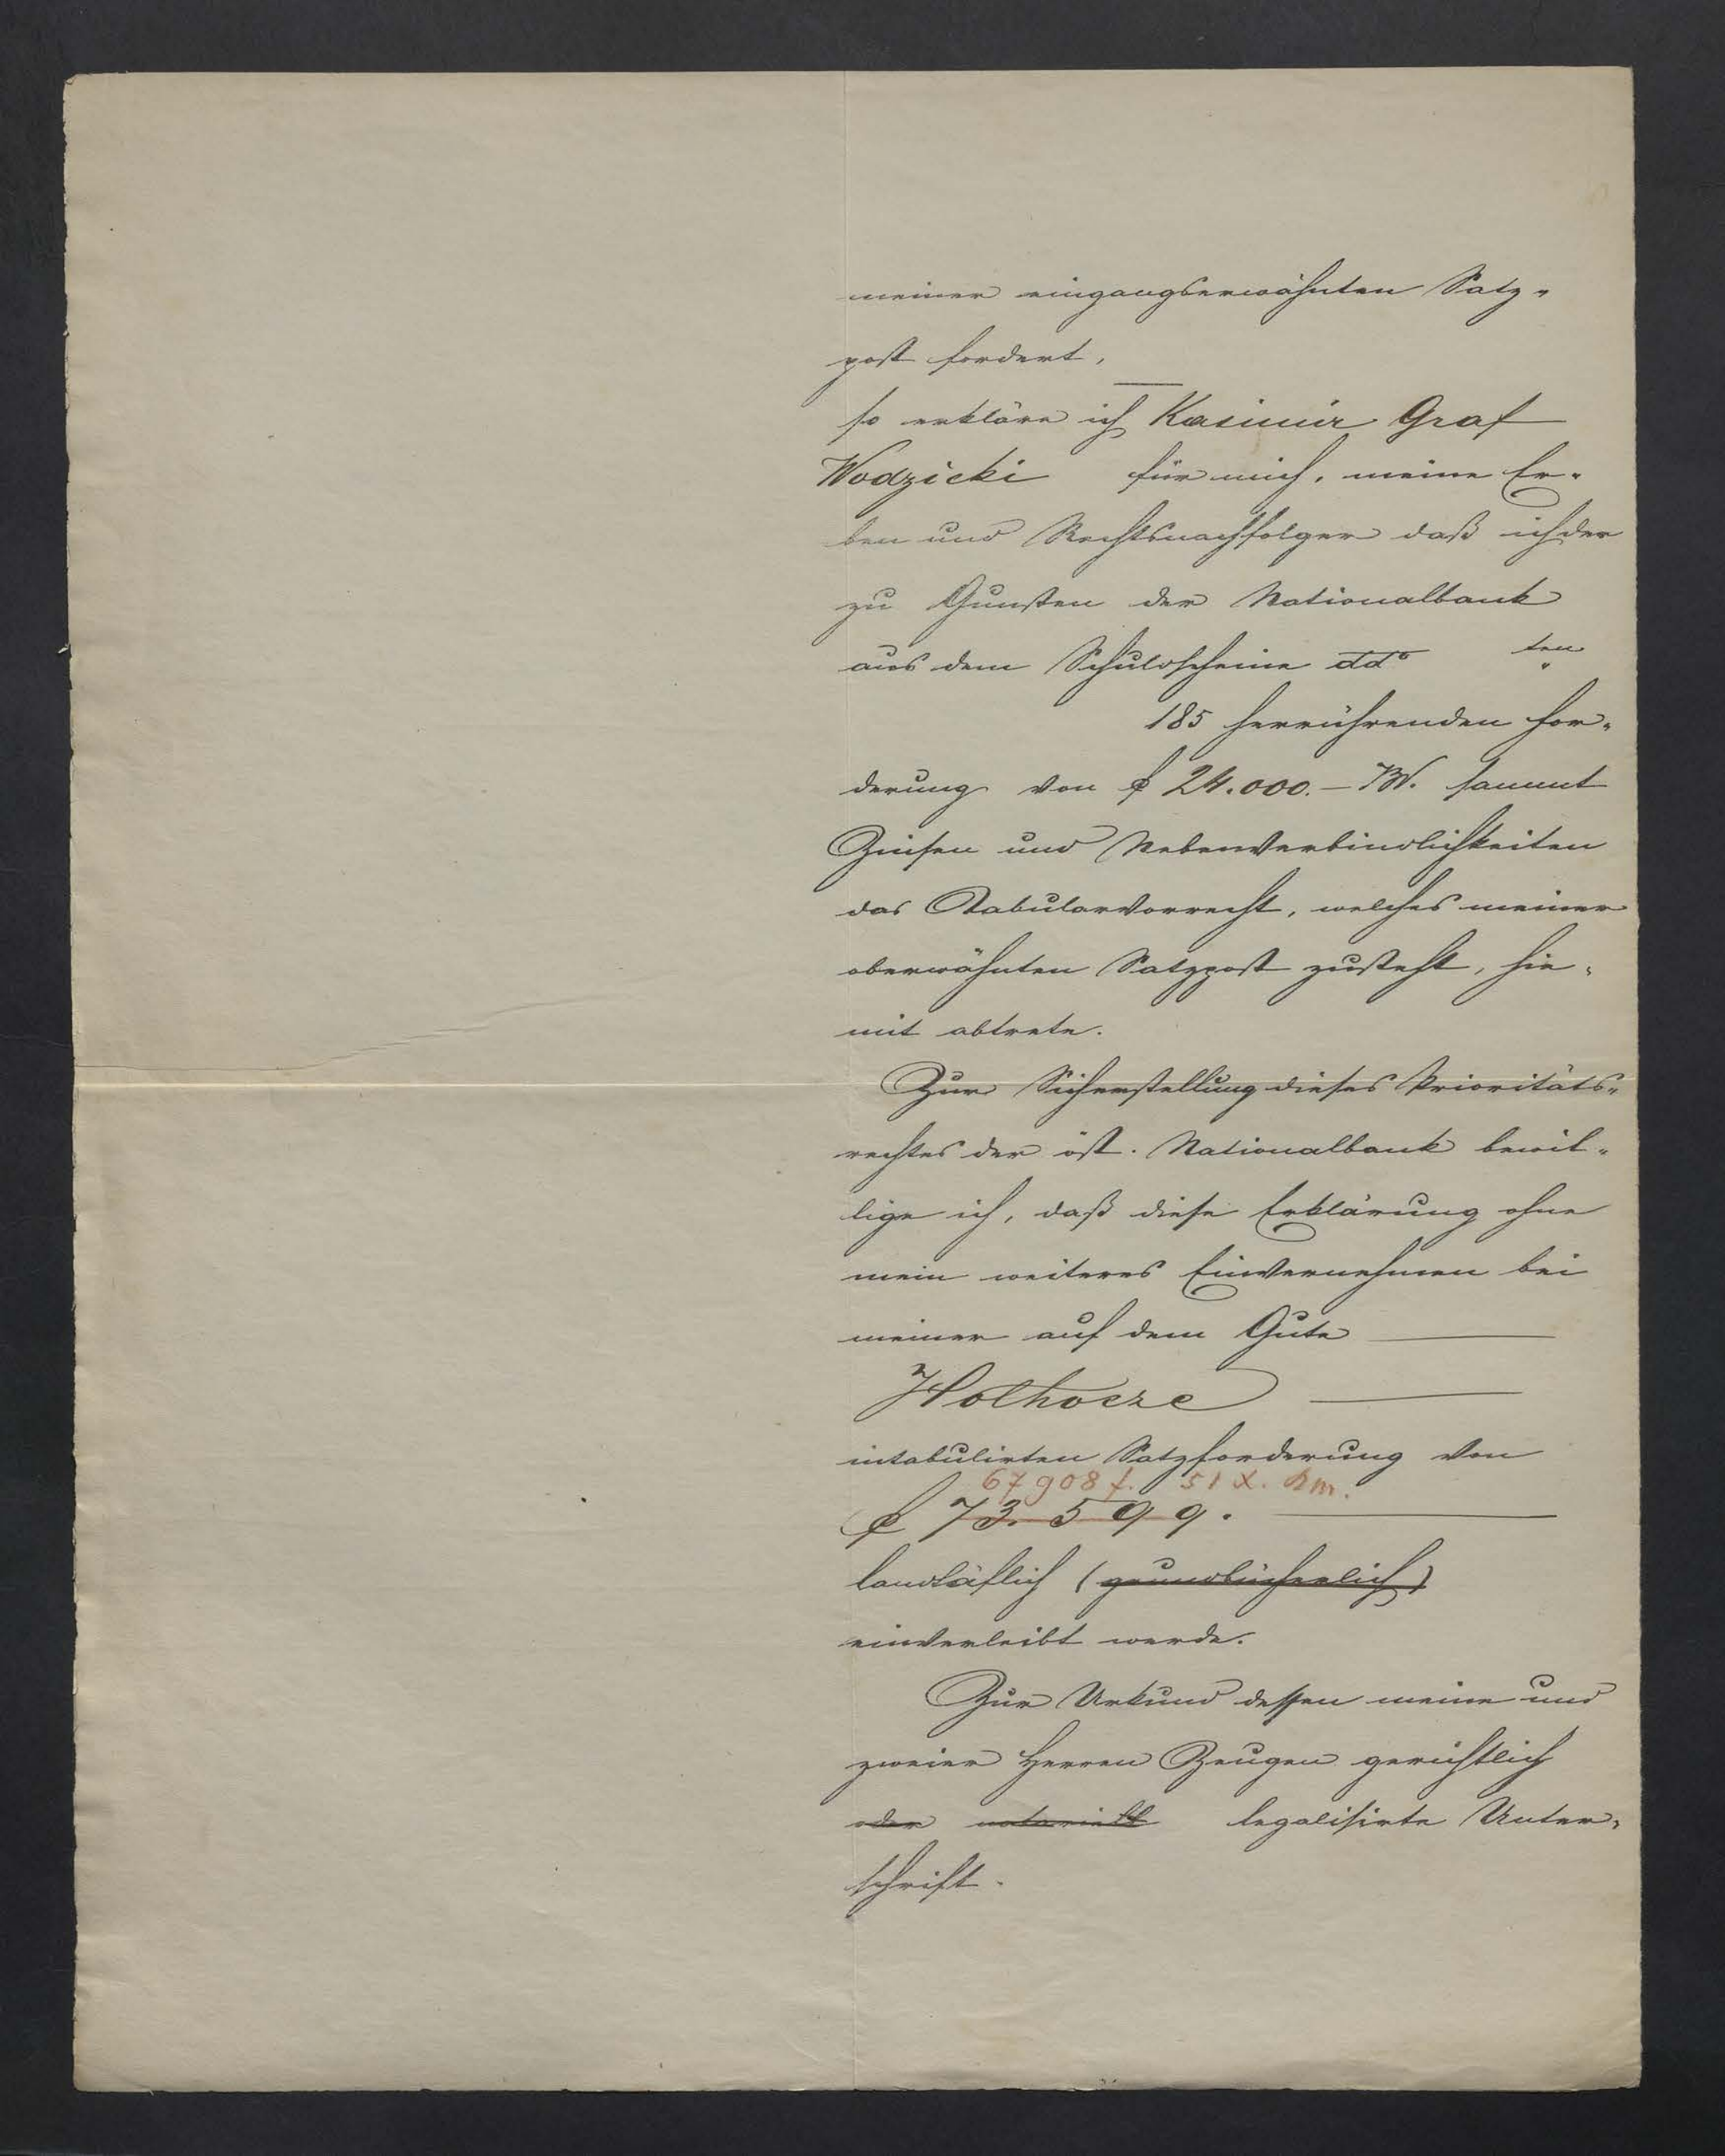 meiner eingangserwähnten Satz-
post fordert,
so erkläre ich Kasimir Graf
Wodzicki für mich, meine Er-
ben und Rechtsnachfolger daß ich der
zu Gunsten der Nationalbank
aus dem Schuldscheine ddo ten
185 herrührenden For-
derung von f 24.000.– BV. sammt
Zinsen und Nebenverbindlichkeiten
das Tabularvorrecht, welches meiner
oberwähnten Satzpost zusteht, hie-
mit abtrete.
Zur Sicherstellung dieses Prioritäts-
rechtes der öst. Nationalbank bewil-
lige ich, daß diese Erklärung ohne
mein weiteres Einvernehmen bei
meiner auf dem Gute
intabulirten Satzforderung von
67908 f. 51 x.
f 73.599.
landtäflich (grundbücherlich)
einverleibt werde.
Zur Urkund dessen meine und
zweier Herren Zeugen gerichtlich
oder notariell legalisirte Unter-
schrift.